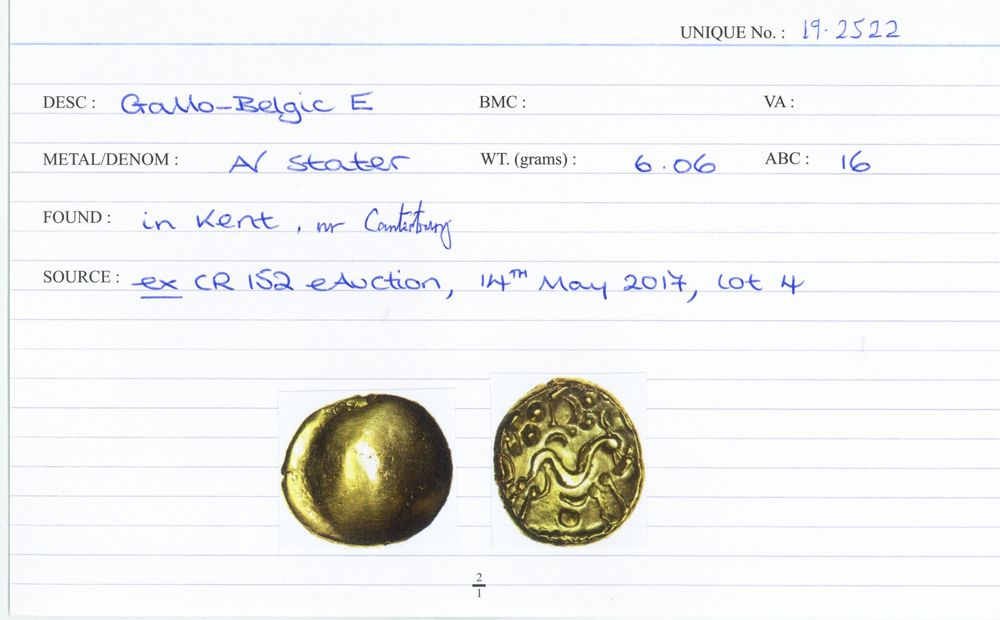 UNIQUE No. : 19.2522
DESC : Gallo-Belgic E BMC : VA :
METAL/DENOM : AV stater WT. (grams) : 6.06 ABC : 16
FOUND : in Kent, nr Canterbury
SOURCE : ex CR 152 eAuction, 14TH May 2017, lot 4
2
1